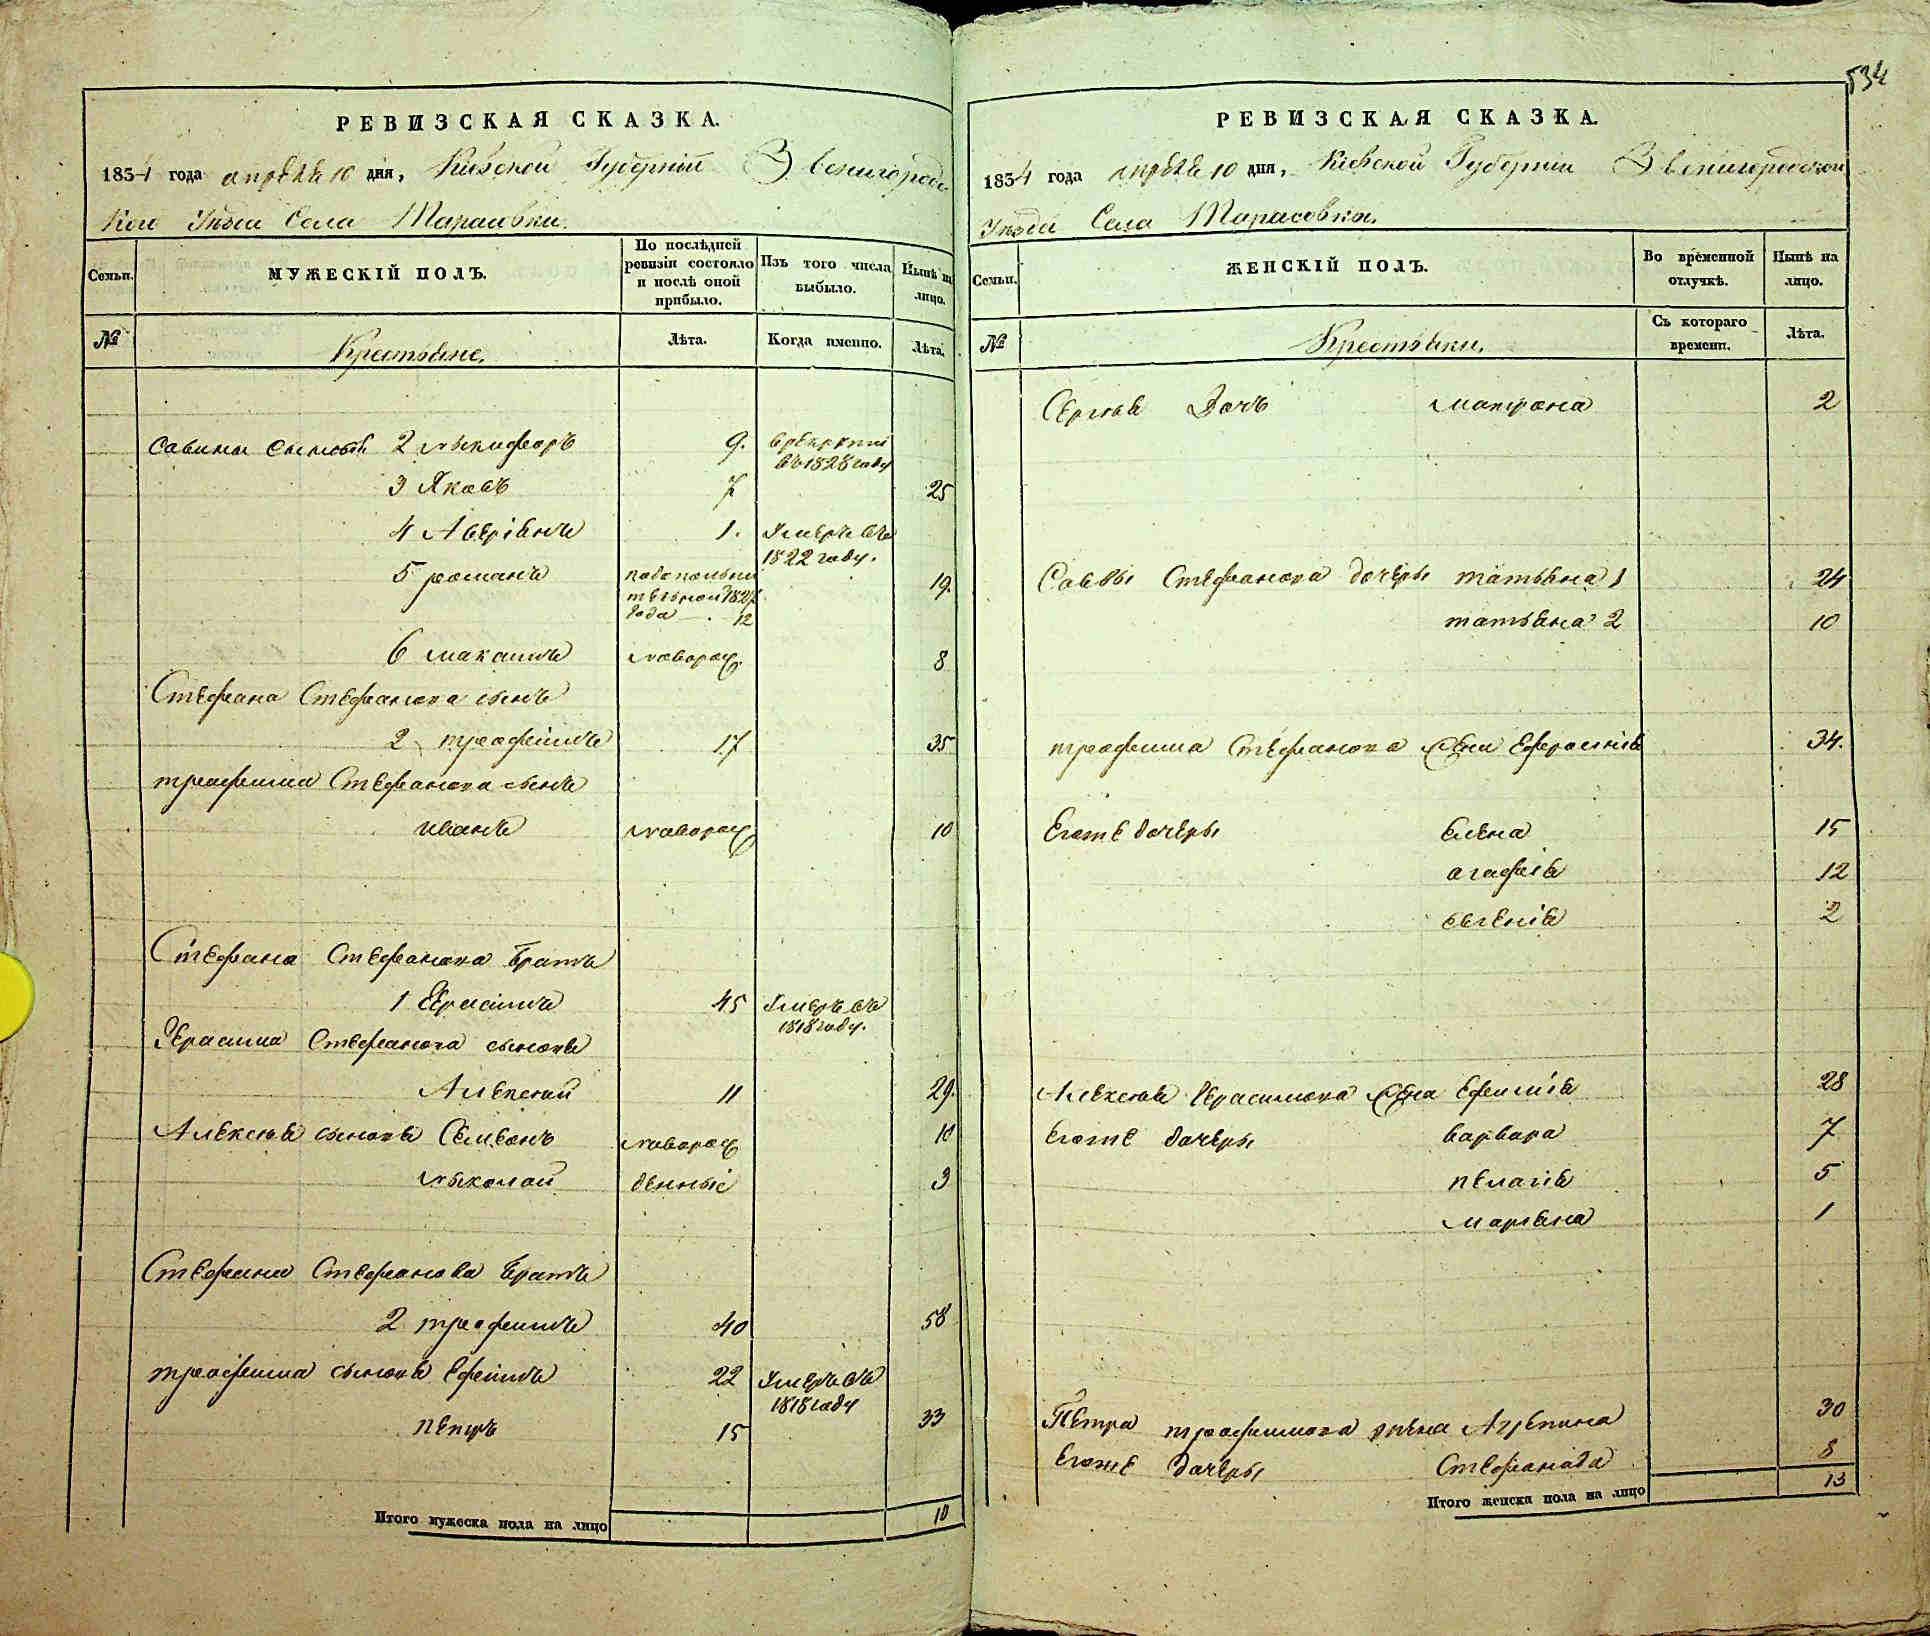 534
РЕВИЗСКАЯ СКАЗКА.
1834 года апреля 10 дня, Киевской Губернии Звенигородс
кого Уезда Села Тарасовки.
Семьи.
МУЖЕСКІЙ ПОЛЪ.
По послѣдней ревизіи состояло и послѣ оной прибыло.
Изъ того числа выбыло.
Нынѣ на лицо.
№
Крестьяне.
Лѣта.
Когда именно.
Лѣта.
Савины сыновья 2 Никифоръ 9. в рекруты
въ 1828 году
3 Яковъ 7 25
4 Аверіянъ 1. Умеръ въ
1822 году.
5 романъ 19.
года 12
6 максимъ новорож. 8
Стефана Стефанова сынъ
2 трофимъ 17 35
трофима Стефанова сынъ
иванъ новорож 10
Стефана Стефанова братъ
1 Герасимъ 45 Умеръ въ
1818 году.
Герасима Стефанова сыновья
Алексей 11 29.
Алексея сыновья Семенъ новорож 10
Николай денные 3
Стефана Стефанова братъ
2 трофимъ 40 58
трофима сыновья Ефимъ 22 Умеръ въ
1818 году
петръ 15 33
Итого мужеска пола на лицо 10
РЕВИЗСКАЯ СКАЗКА.
1834 года апреля 10 дня, Киевской Губернии Звенигородской
Уезда Села Тарасовки.
Семьи.
ЖЕНСКІЙ ПОЛЪ.
Во временной отлучкѣ.
Нынѣ на лицо.
№
Крестьянки.
Съ котораго времени.
Лѣта.
Сергея Дочь матрона 2
Саввы Стефанова дочери татьяна 1 24
татьяна 2 10
трофима Стефанова жена Ефросиния 34.
Егоже дочери елена 15
агафія 12
евгенія 2
Алексея Герасимова жена Ефимія 28
Егоже дочери варвара 7
пелагія 5
марьяна 1
Петра трофимова жена Агрепина 30
Егоже дочери Стефанида 8
Итого женска пола на лицо 13